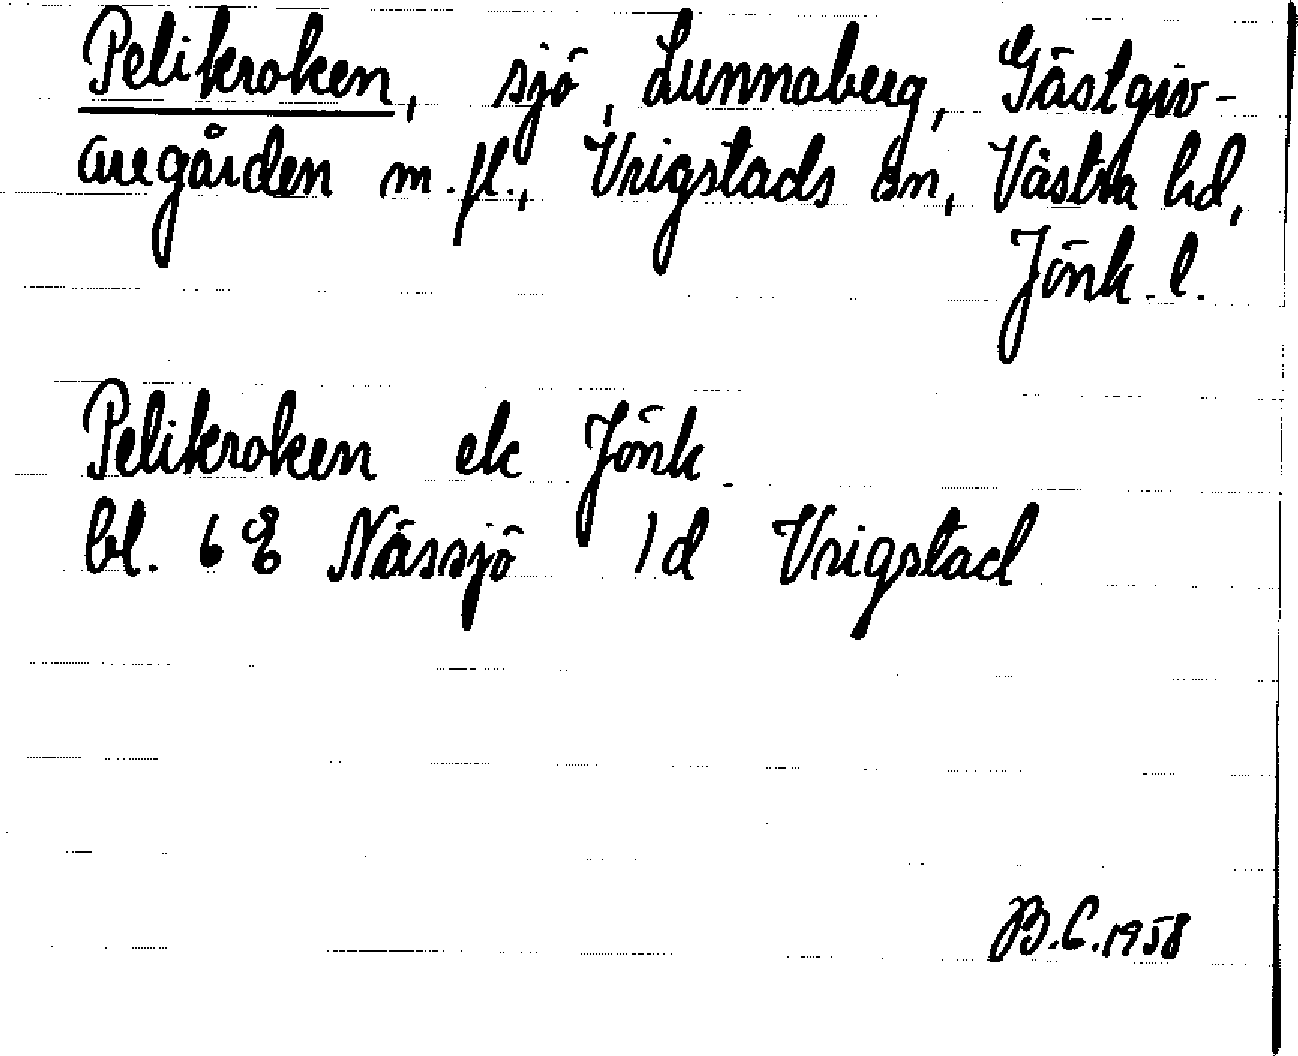 Pelikroken, sjö, Lunnaberg, Gästgiv-
aregården m.fl., Vrigstads sn, Västra hd,
Jönk. l.
Pelikroken ek Jönk.
bl. 6 E Nässjö 1d Vrigstad
B.C. 1958